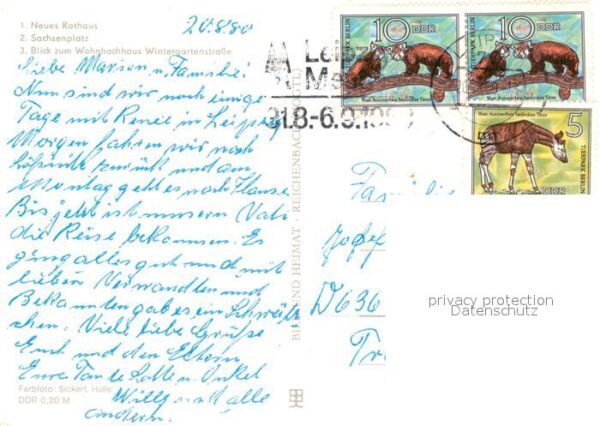 20.8.80
1. Neues Rathaus
2. Sachsenplatz
3. Blick zum Wohnhochhaus Wintergartenstraße
Liebe Marion u. Familie!
Nun sind wir noch einige
Tage mit Renee in Leipzig
Morgen fahren wir nach
zurück und am
Montag geht es nach Hause
Bis jetzt ist unserm Vati
die Reise bekommen. Es
ging alles gut und mit
lieben Verwandten und
Bekannten gab es ein Schwätz
chen. Viele liebe Grüße
Euch und den Eltern
Eure Tante Lotte u. Onkel
Willy und alle
andern.
Farbfoto: Sickert, Halle
DDR 0,20 M
BILD UND HEIMAT · REICHENBACH
10 DDR
TIERPARK BERLIN
Vom Aussterben bedrohte Tiere
10 DDR
TIERPARK BERLIN
Vom Aussterben bedrohte Tiere
Vom Aussterben bedrohte Tiere
5
TIERPARK BERLIN
DDR
31.8-6.9.19
Familie
Josef
D636
privacy protection
Datenschutz